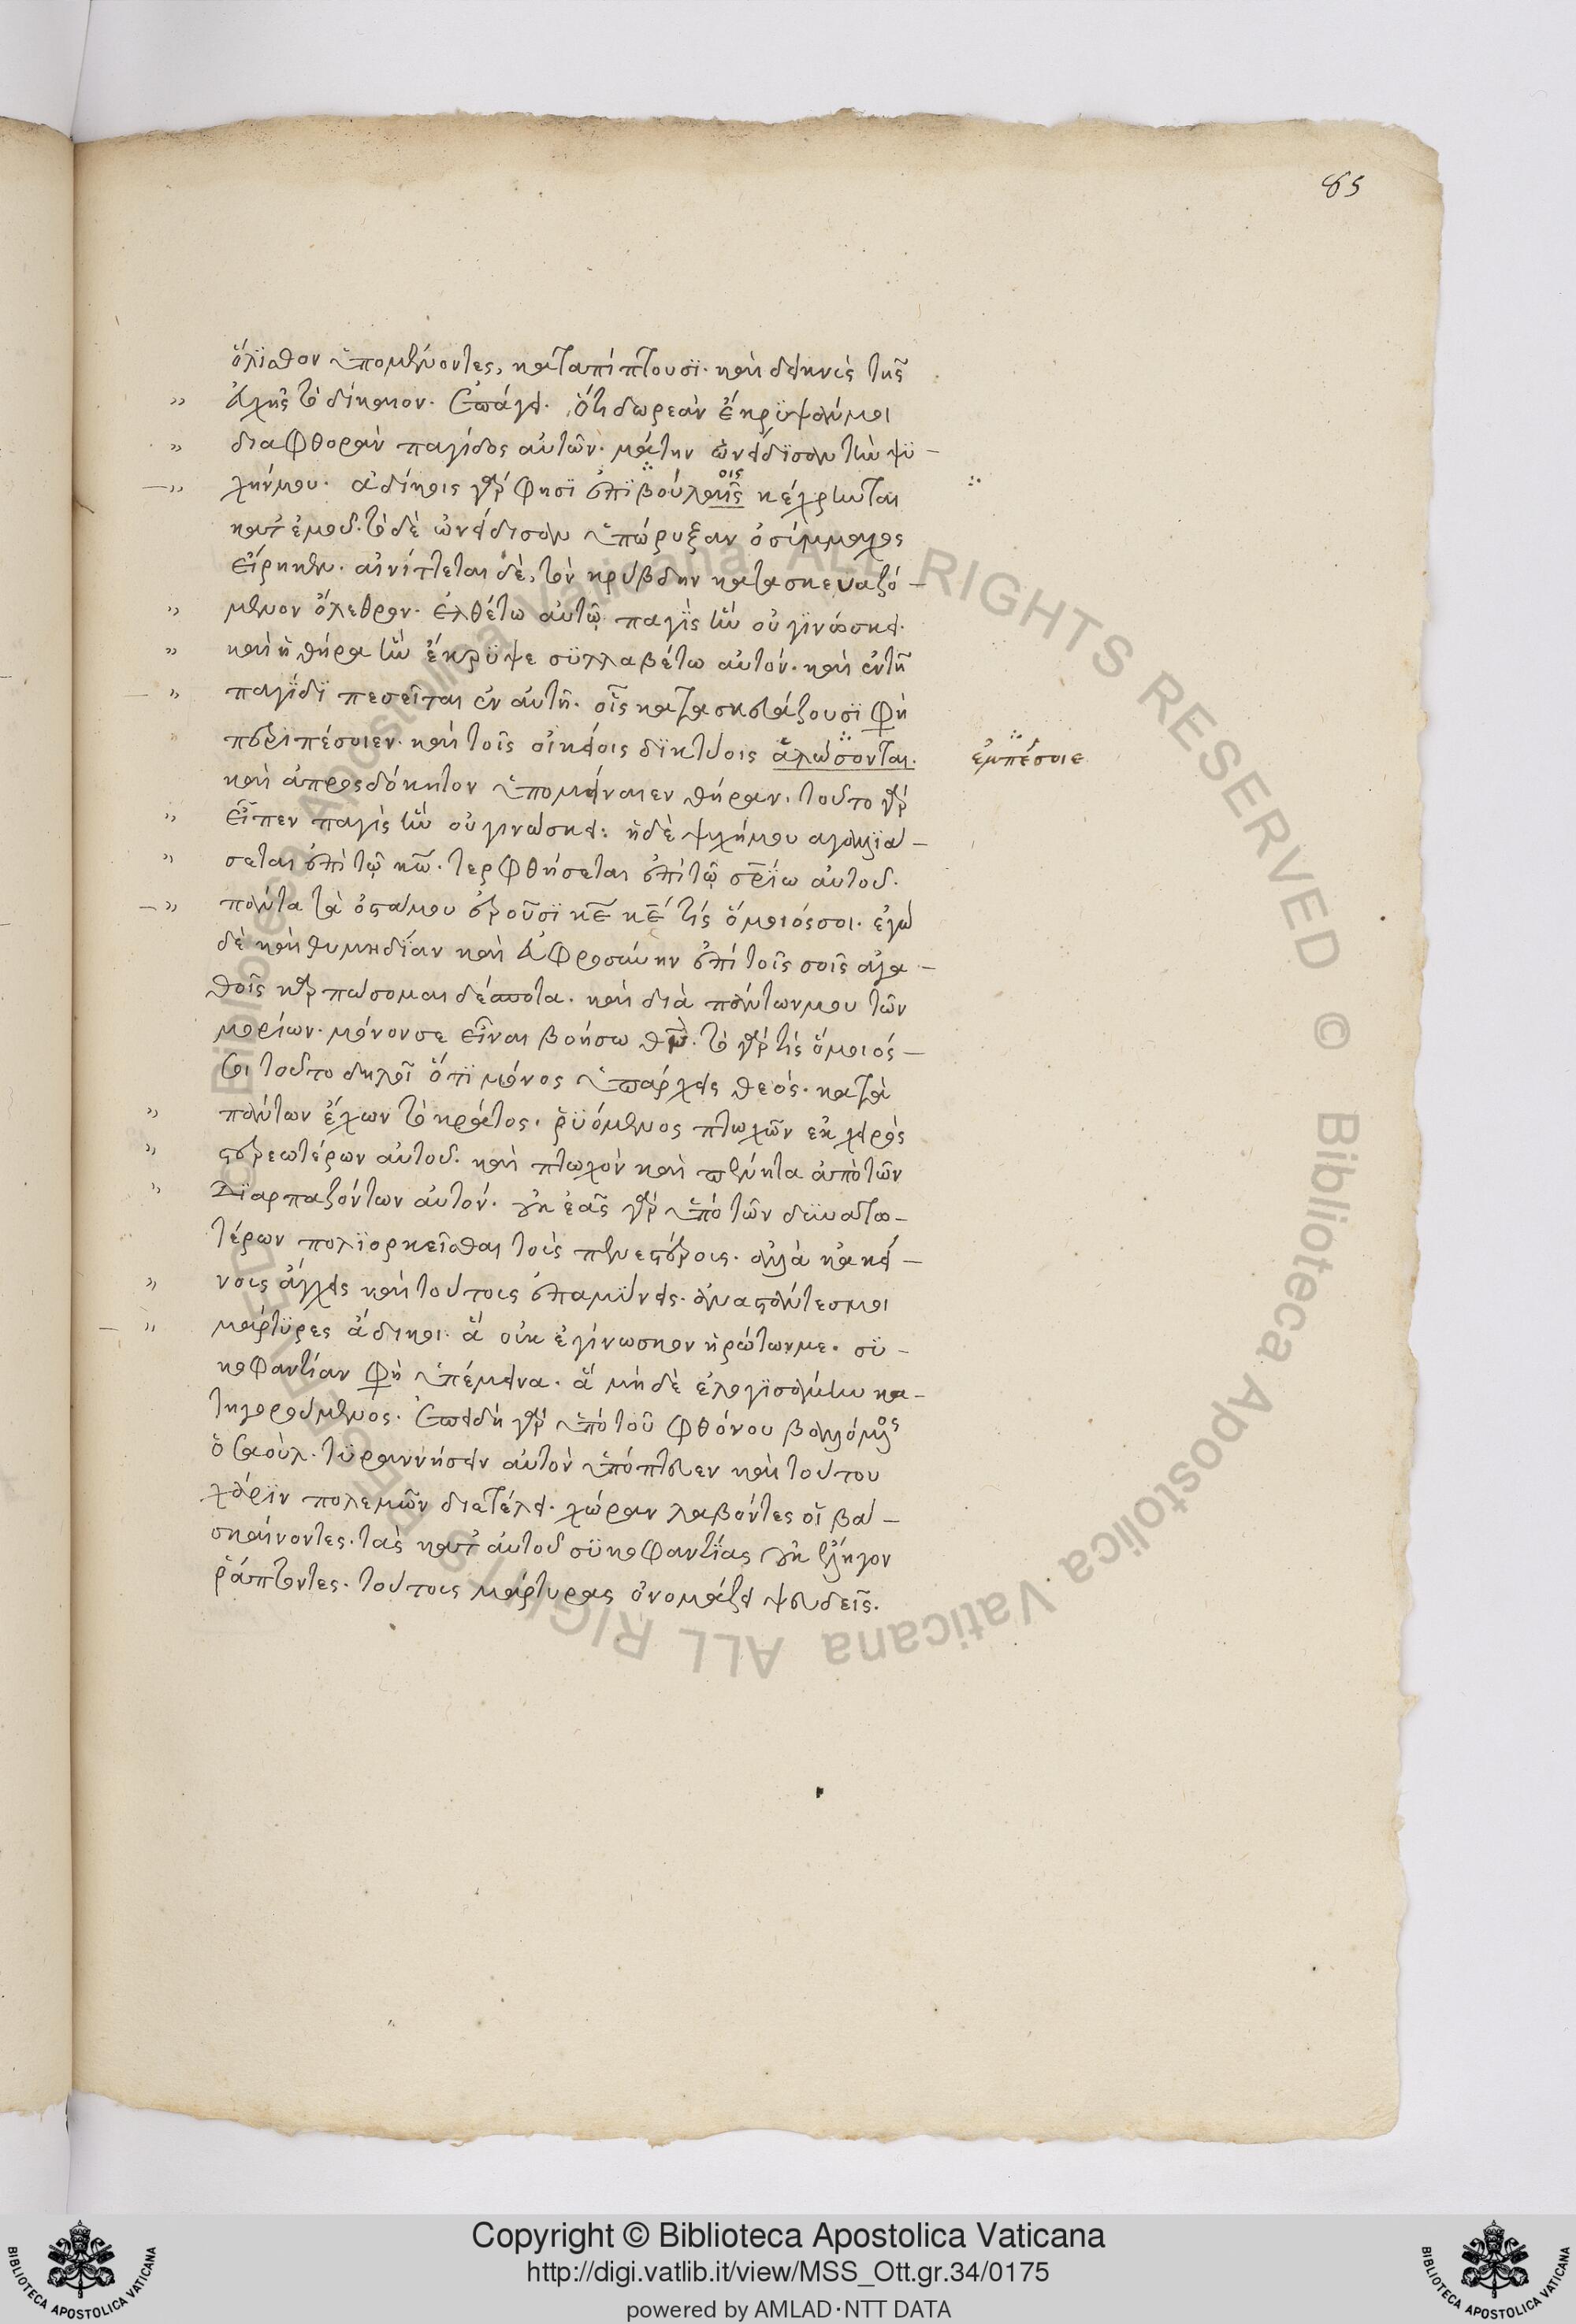 85
ὄλϊσθον ὑπομένοντες, καταπίπτουσϊ. καὶ δεικνὺς τῆς
εὐχῆς τὸ δίκαιον. ἐπάγει. ὅτι δωρεὰν ἔκρϋψάν μοι
διαφθορὰν παγίδος αὐτῶν. μάτην ὠνείδϊσαν τὴν ψϋ–
χήν μου. ἀδίκοις γάρ φησϊ ἐπϊβουλαῖς κέχρηνται
οις
κατ ἐμοῦ. τὸ δὲ ὠνείδισαν ὑπώρυξαν ὁ σύμμαχος
εἴρηκεν. αἰνίττεται δὲ, τὸν κρύβδην κατασκευαζό–
μενον ὄλεθρον. ἐλθέτω αὐτῷ παγϊς ἣν οὐ γϊνώσκει.
καὶ ἡ θήρα ἣν ἔκρϋψε σϋλλαβέτω αὐτόν. καὶ ἐν τῆ
παγϊδϊ πεσεῖται ἐν αὐτῆ. οἷς κατασκευάζουσϊ φη
περιπέσοιεν. καὶ τοῖς οἰκείοις δϊκτύοις ἁλώσονται.
ἐμπέσοιε
καὶ ἀπροσδόκητον ὑπομείναιεν θήραν. τοῦτο γὰρ
εἶπεν παγὶς ἣν οὐ γινώσκει: ἡ δὲ ψυχή μου ἀγαλλϊά–
σεται ἐπὶ τῷ κῶ. τερφθήσεται ἐπὶ τῷ σρϊω αὐτοῦ.
πάντα τὰ ὀστᾶ μου ἐροῦσϊ κε κε τίς ὅμοιός σοι. ἐγὼ
δὲ καὶ θυμηδίαν καὶ εὐφροσύνην ἐπὶ τοῖς σοῖς ἀγα–
θοῖς καρπώσομαι δέσποτα. καὶ διὰ πάντων μου τῶν
μορίων. μόνον σε εἶναι βοήσω θν. τὸ γὰρ τίς ὅμοιός–
σοι τοῦτο δηλοῖ ὅτϊ μόνος ὑπάρχεις θεός. κατὰ
πάντων ἔχων τὸ κράτος. ῥϋόμενος πτωχὸν ἐκ χειρὸς
στερεωτέρων αὐτοῦ. καὶ πτωχὸν καὶ πένητα ἀπὸ τῶν
Δϊαρπαζόντων αὐτόν. οὐκ ἐᾶς γὰρ ὑπὸ τῶν δϋνατω–
τέρων πολϊορκεῖσθαι τοὺς πενεστέρους. ἀλλὰ κἀκεί–
νους ἄγχεις καὶ τούτοις ἐπαμϋνεις. ἀναστάντες μοι
μάρτϋρες ἄδικοι. ἃ οὐκ ἐγίνωσκον ἠρώτων με. σϋ–
κοφαντίαν φη ὑπέμεινα. ἃ μὴ δὲ ἐλογϊσάμην κα–
τηγορούμενος. ἐπειδὴ γὰρ ὑπὸ τοῦ φθόνου βαλλόμενος
ὁ σαοὺλ. τϋραννήσειν αὐτὸν ὑπόπτευεν καὶ τούτου
χάρϊν πολεμῶν διετέλει. χώραν λαβόντες οἱ βα–
σκαίνοντες. τὰς κατ αὐτοῦ σϋκοφαντϊας οὐκ ἔληγον
ῥάπτοντες. τούτους μάρτυρας ὀνομάζει ψευδεῖς.
Copyright © Biblioteca Apostolica Vaticana
http://digi.vatlib.it/view/MSS_Ott.gr.34/0175
powered by AMLAD·NTT DATA